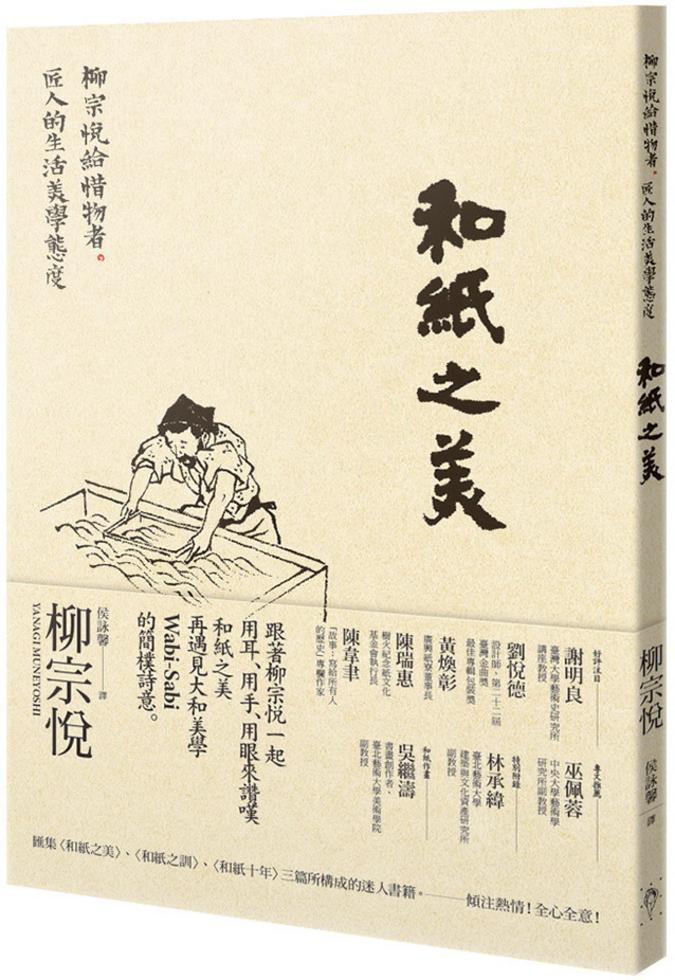 柳宗悅給惜物者。
匠人的生活美學態度
和紙之美
跟著柳宗悅一起
用耳、用手、用眼來讚嘆
和紙之美
再遇見大和美學
Wabi-Sabi
的簡樸詩意。
侯詠馨 譯
柳宗悅
YANAGI MUNEYOSHI
好評注目
謝明良
臺灣大學藝術史研究所
講座教授
劉悅德
設計師、第二十二屆
臺灣金曲獎
最佳專輯包裝獎
黃煥彰
廣興紙寮董事長
陳瑞惠
樹火紀念紙文化
基金會執行長
陳韋聿
「故事:寫給所有人
的歷史」專欄作家
專文推薦
巫佩蓉
中央大學藝術學
研究所副教授
特別附錄
林承緯
臺北藝術大學
建築與文化資產研究所
副教授
和紙作畫
吳繼濤
書畫創作者、
臺北藝術大學美術學院
副教授
匯集〈和紙之美〉、〈和紙之訓〉、〈和紙十年〉三篇所構成的迷人書籍。——傾注熱情!全心全意!
柳宗悅給惜物者。匠人的生活美學態度
和紙之美
柳宗悅
侯詠馨 譯